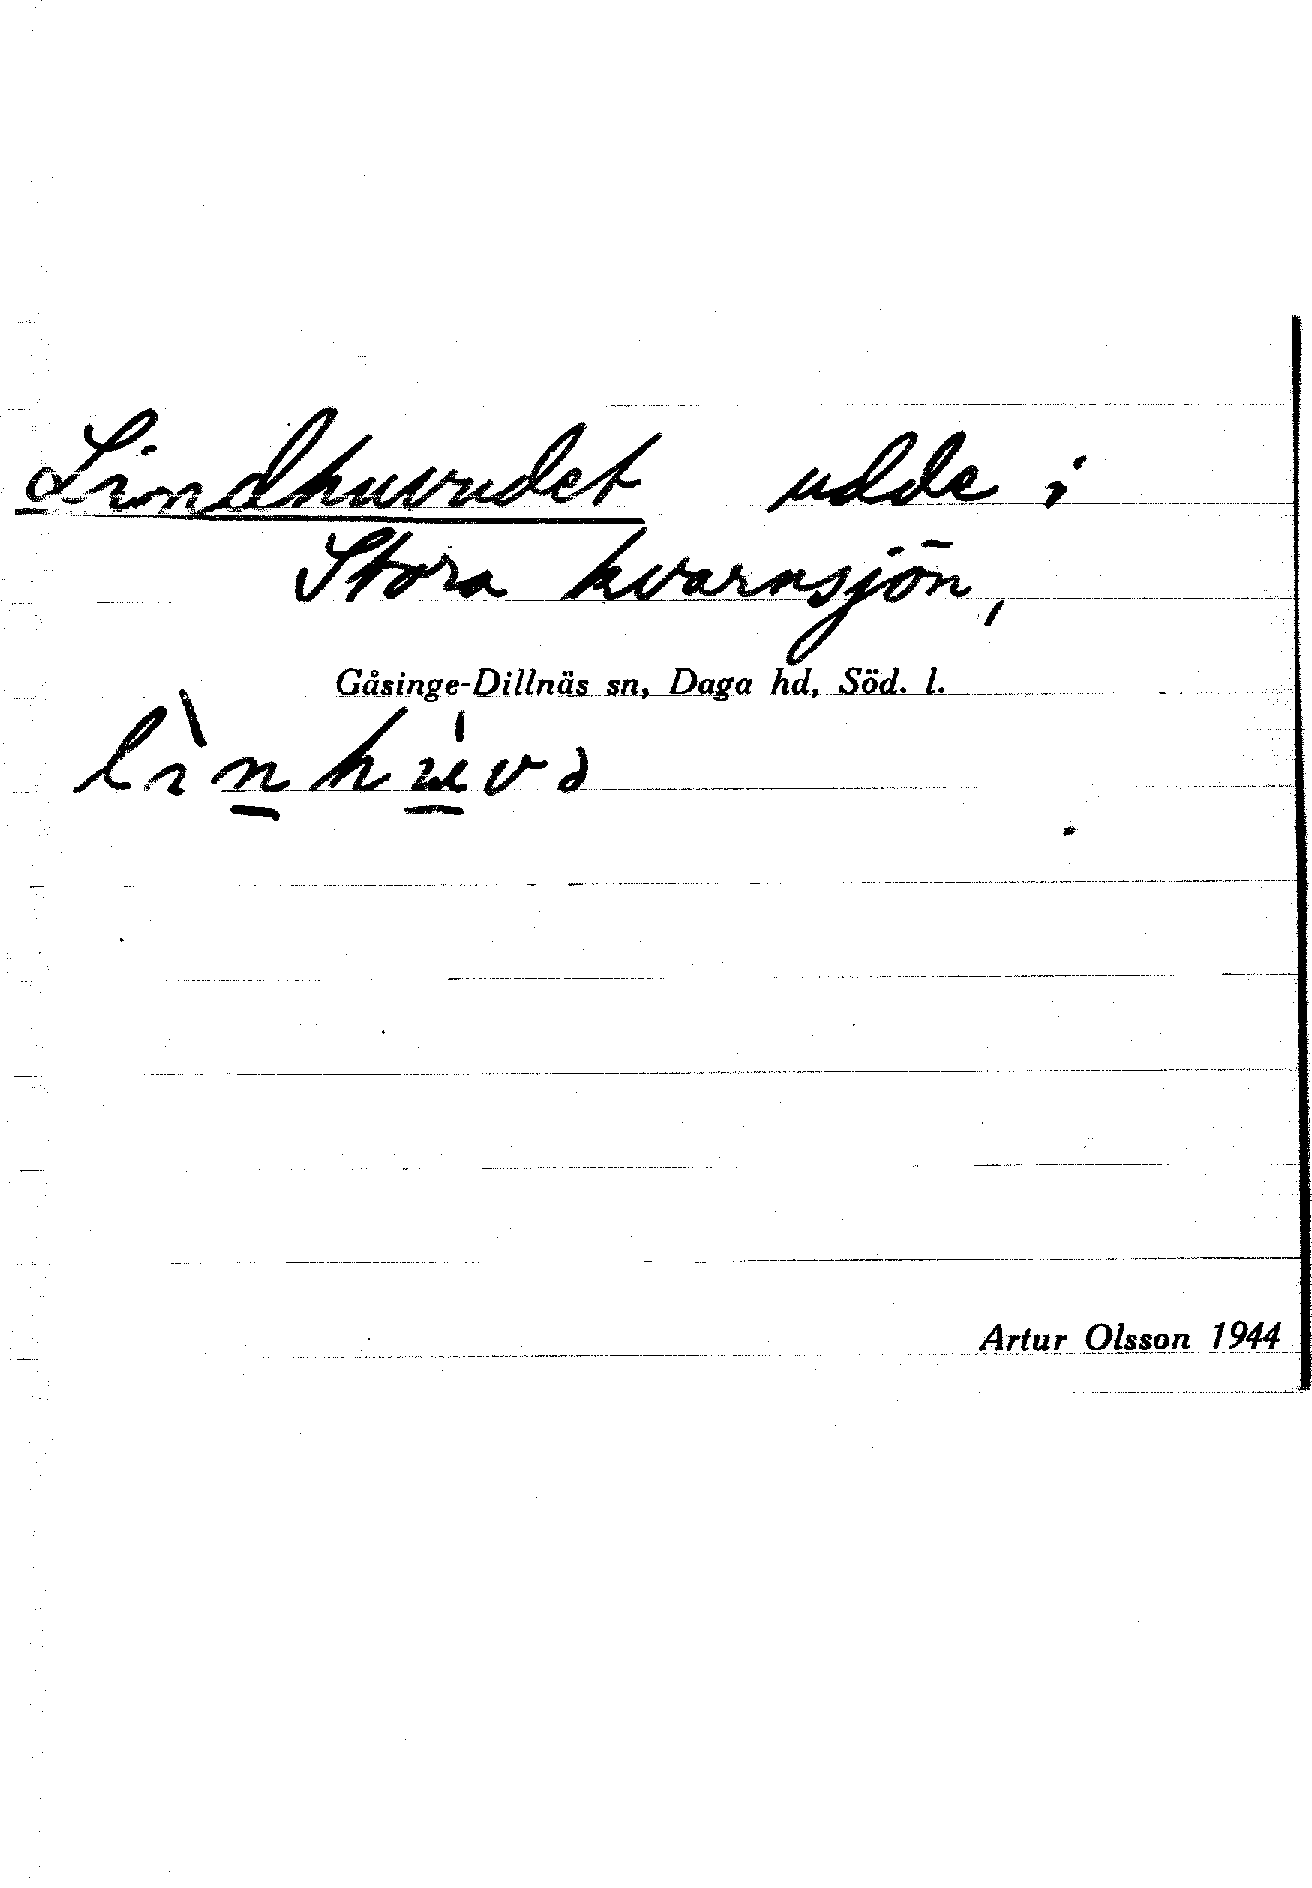 Lindhuvudet udde i
Stora kvarnsjön,
Gåsinge-Dillnäs sn, Daga hd, Söd. l.
lìn̲hu̲̍və
Artur Olsson 1944